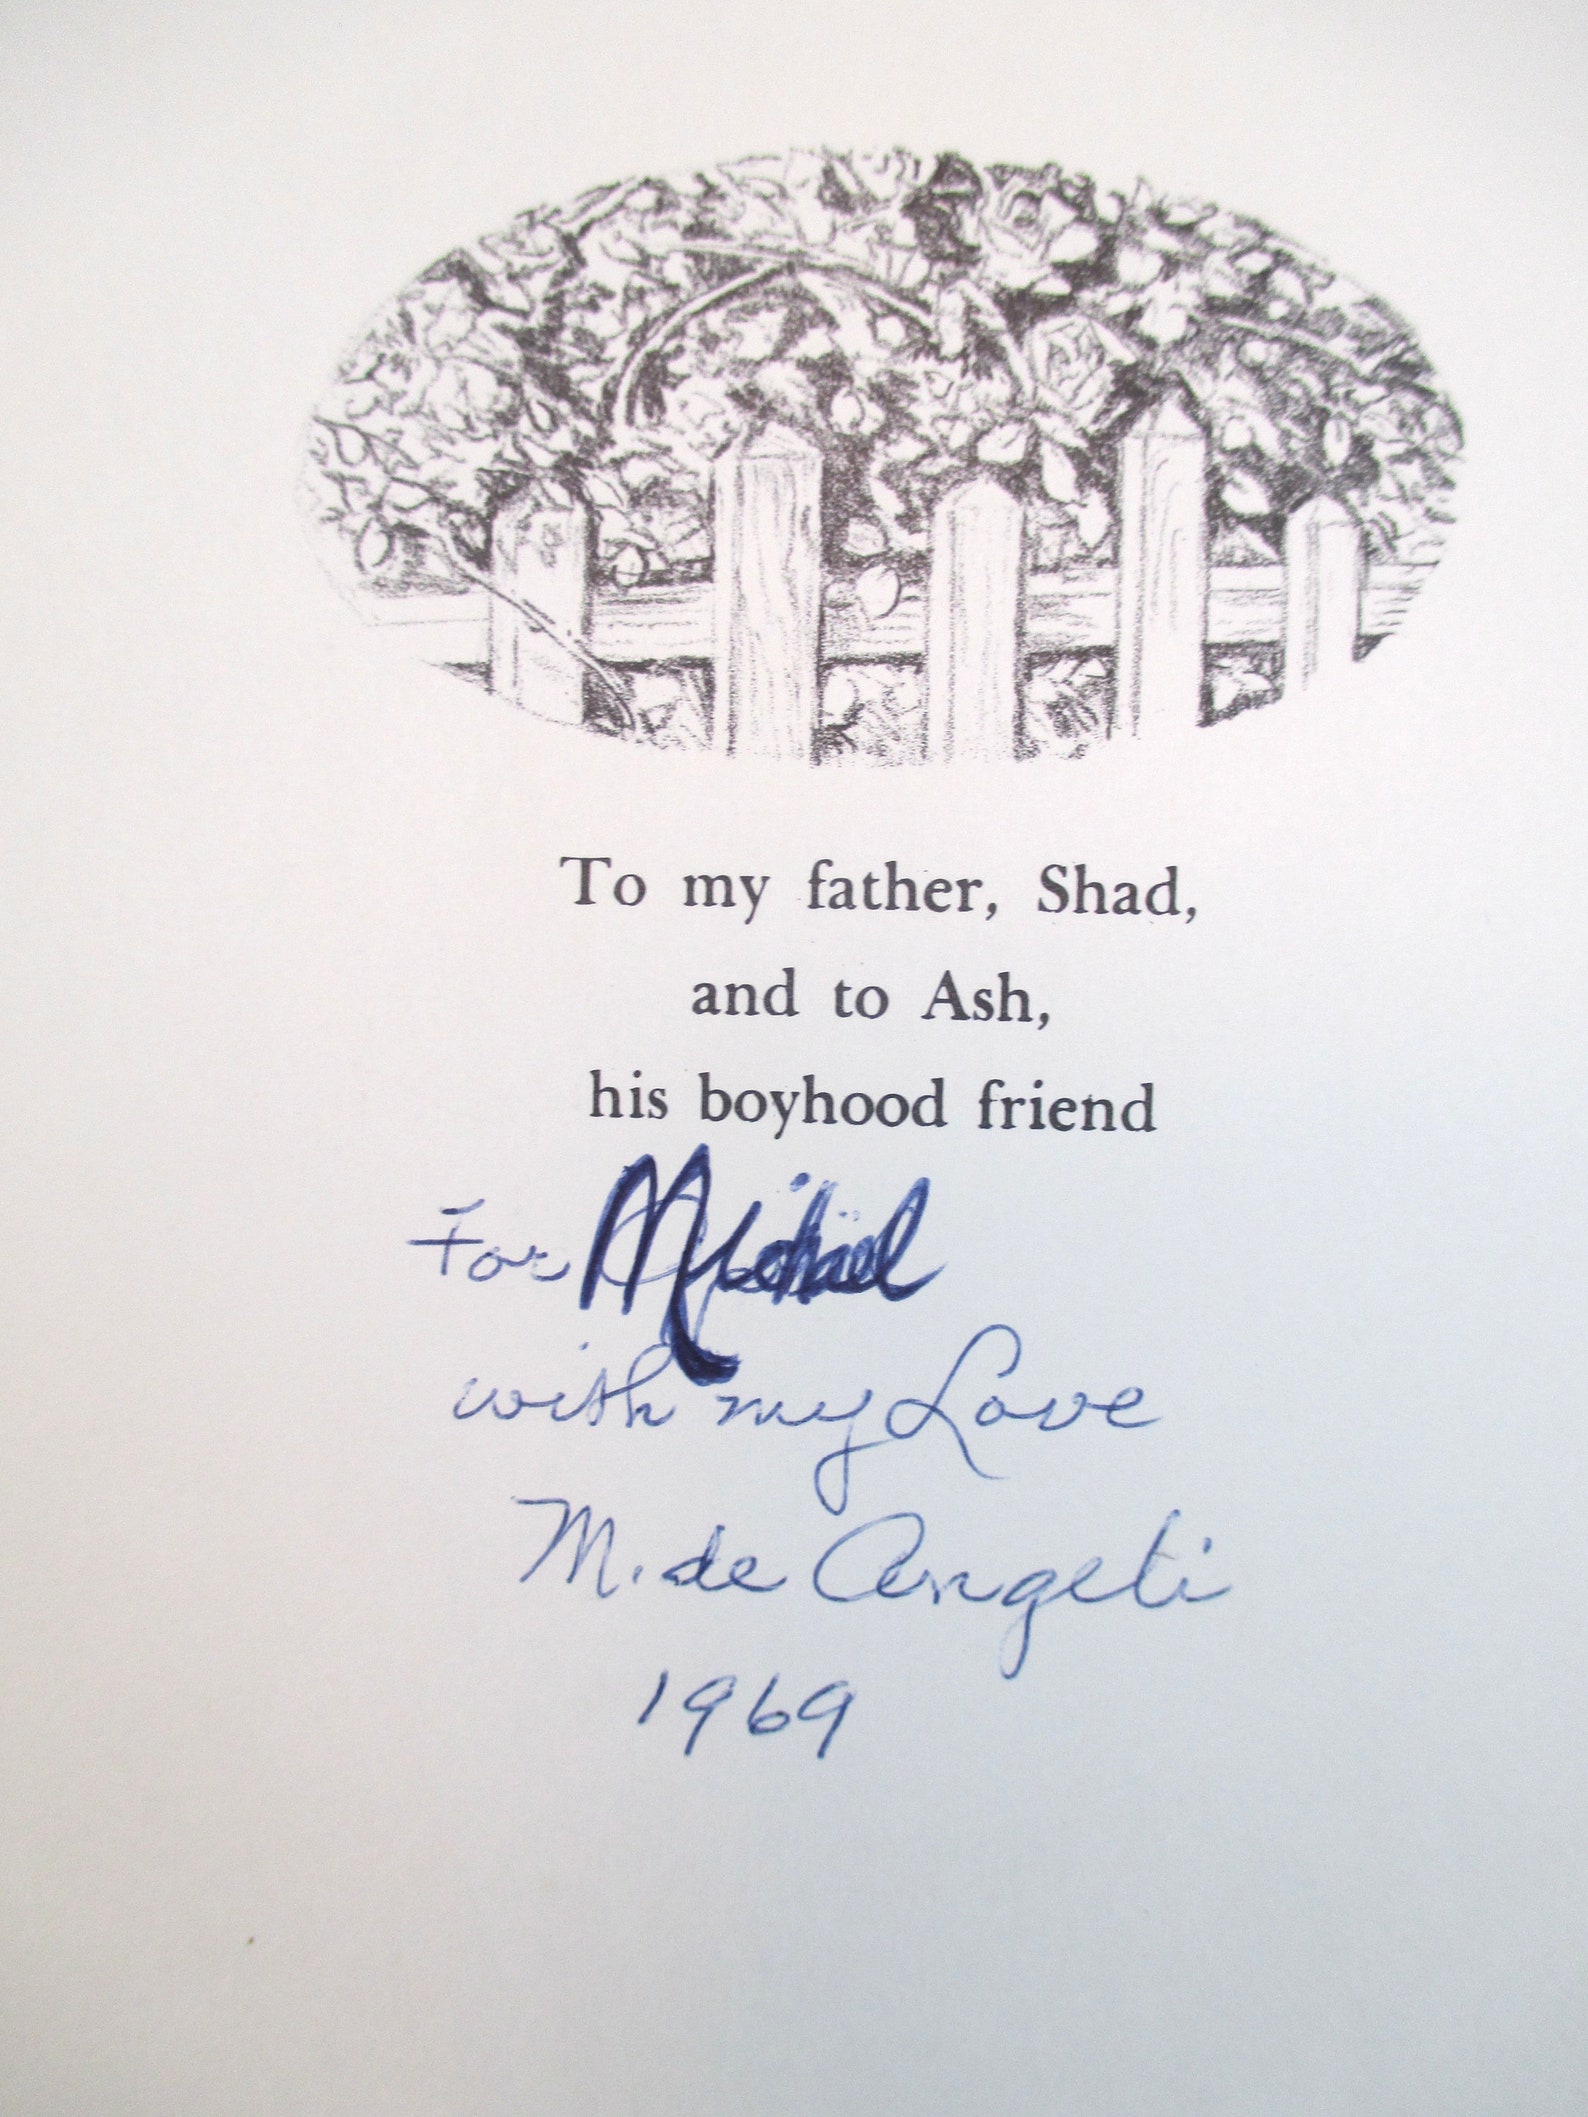 To my father, Shad,
and to Ash,
his boyhood friend
For Michael
with my Love
M. de Angeli
1969